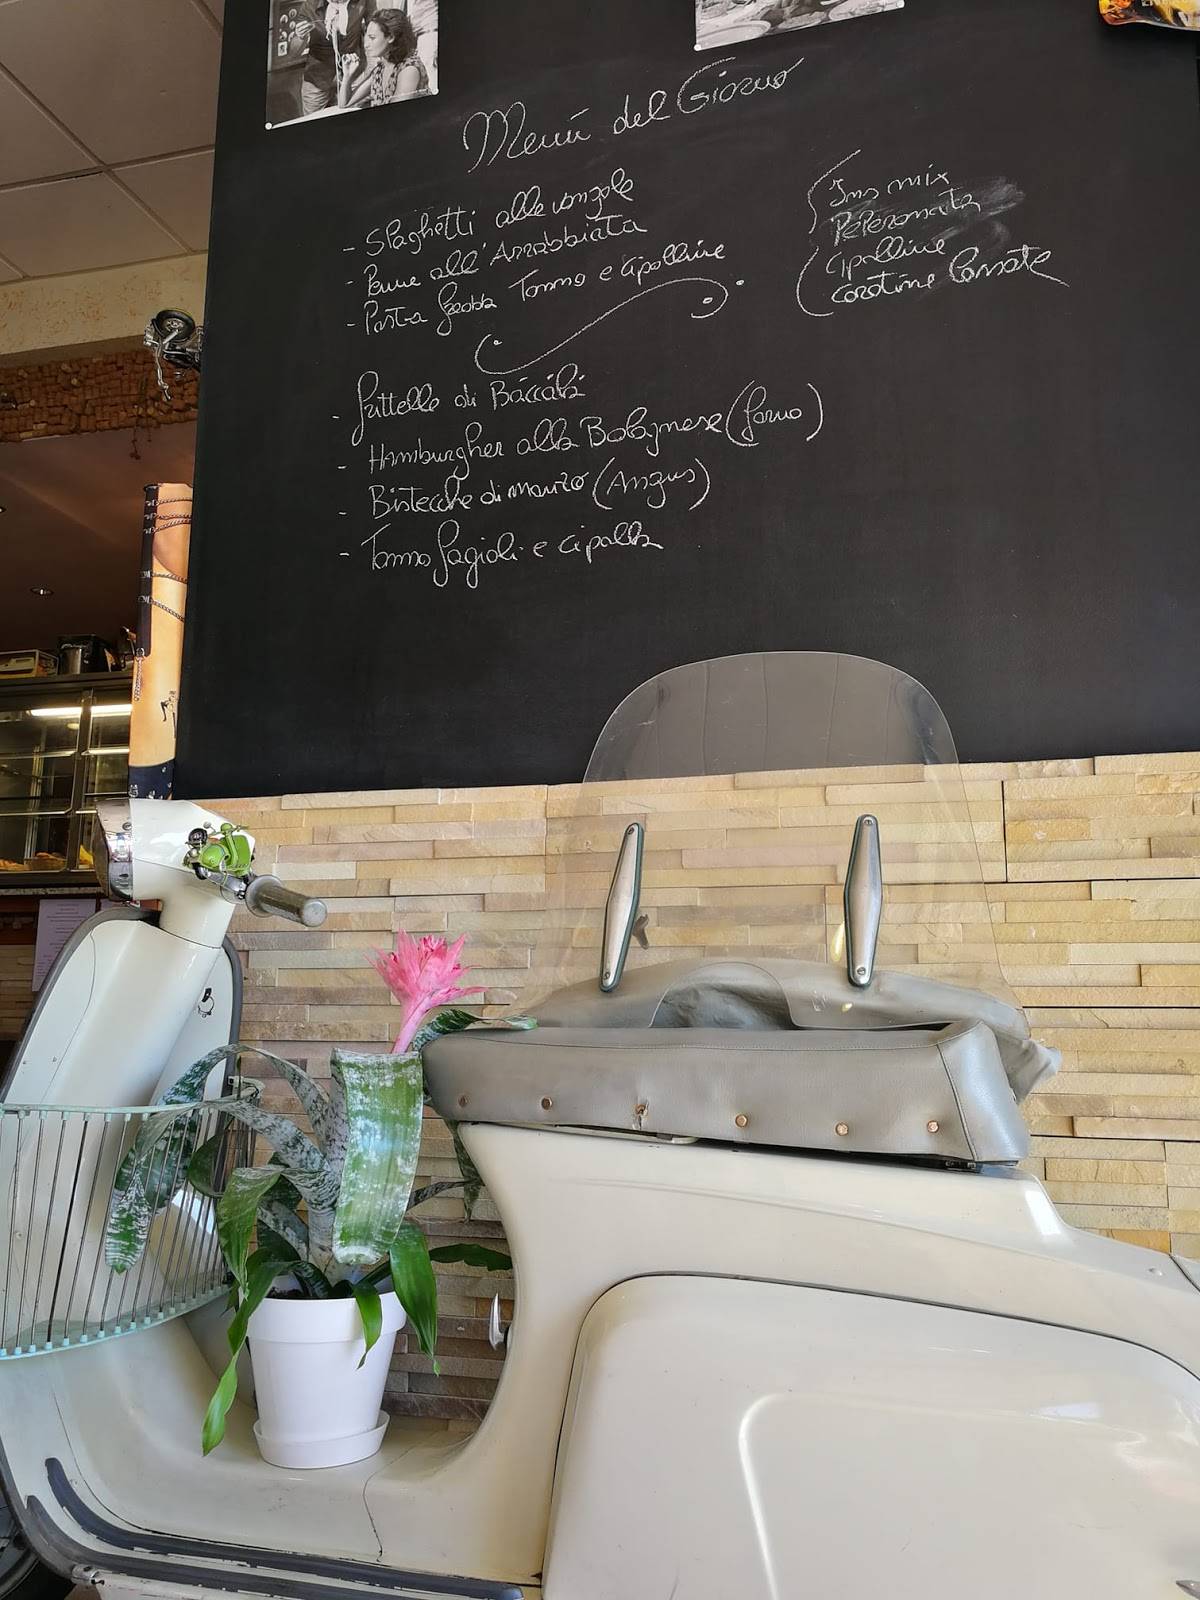 Menù del Giorno
- Spaghetti alle vongole
- Penne all'Arrabbiata
- Pasta fredda Tonno e cipolline
- frittelle di Baccalà
- Hamburgher alla Bolognese (forno)
- Bistecche di manzo (Angus)
- Tonno fagioli e cipolla
Ins mix
Peperonata
cipolline
carotine